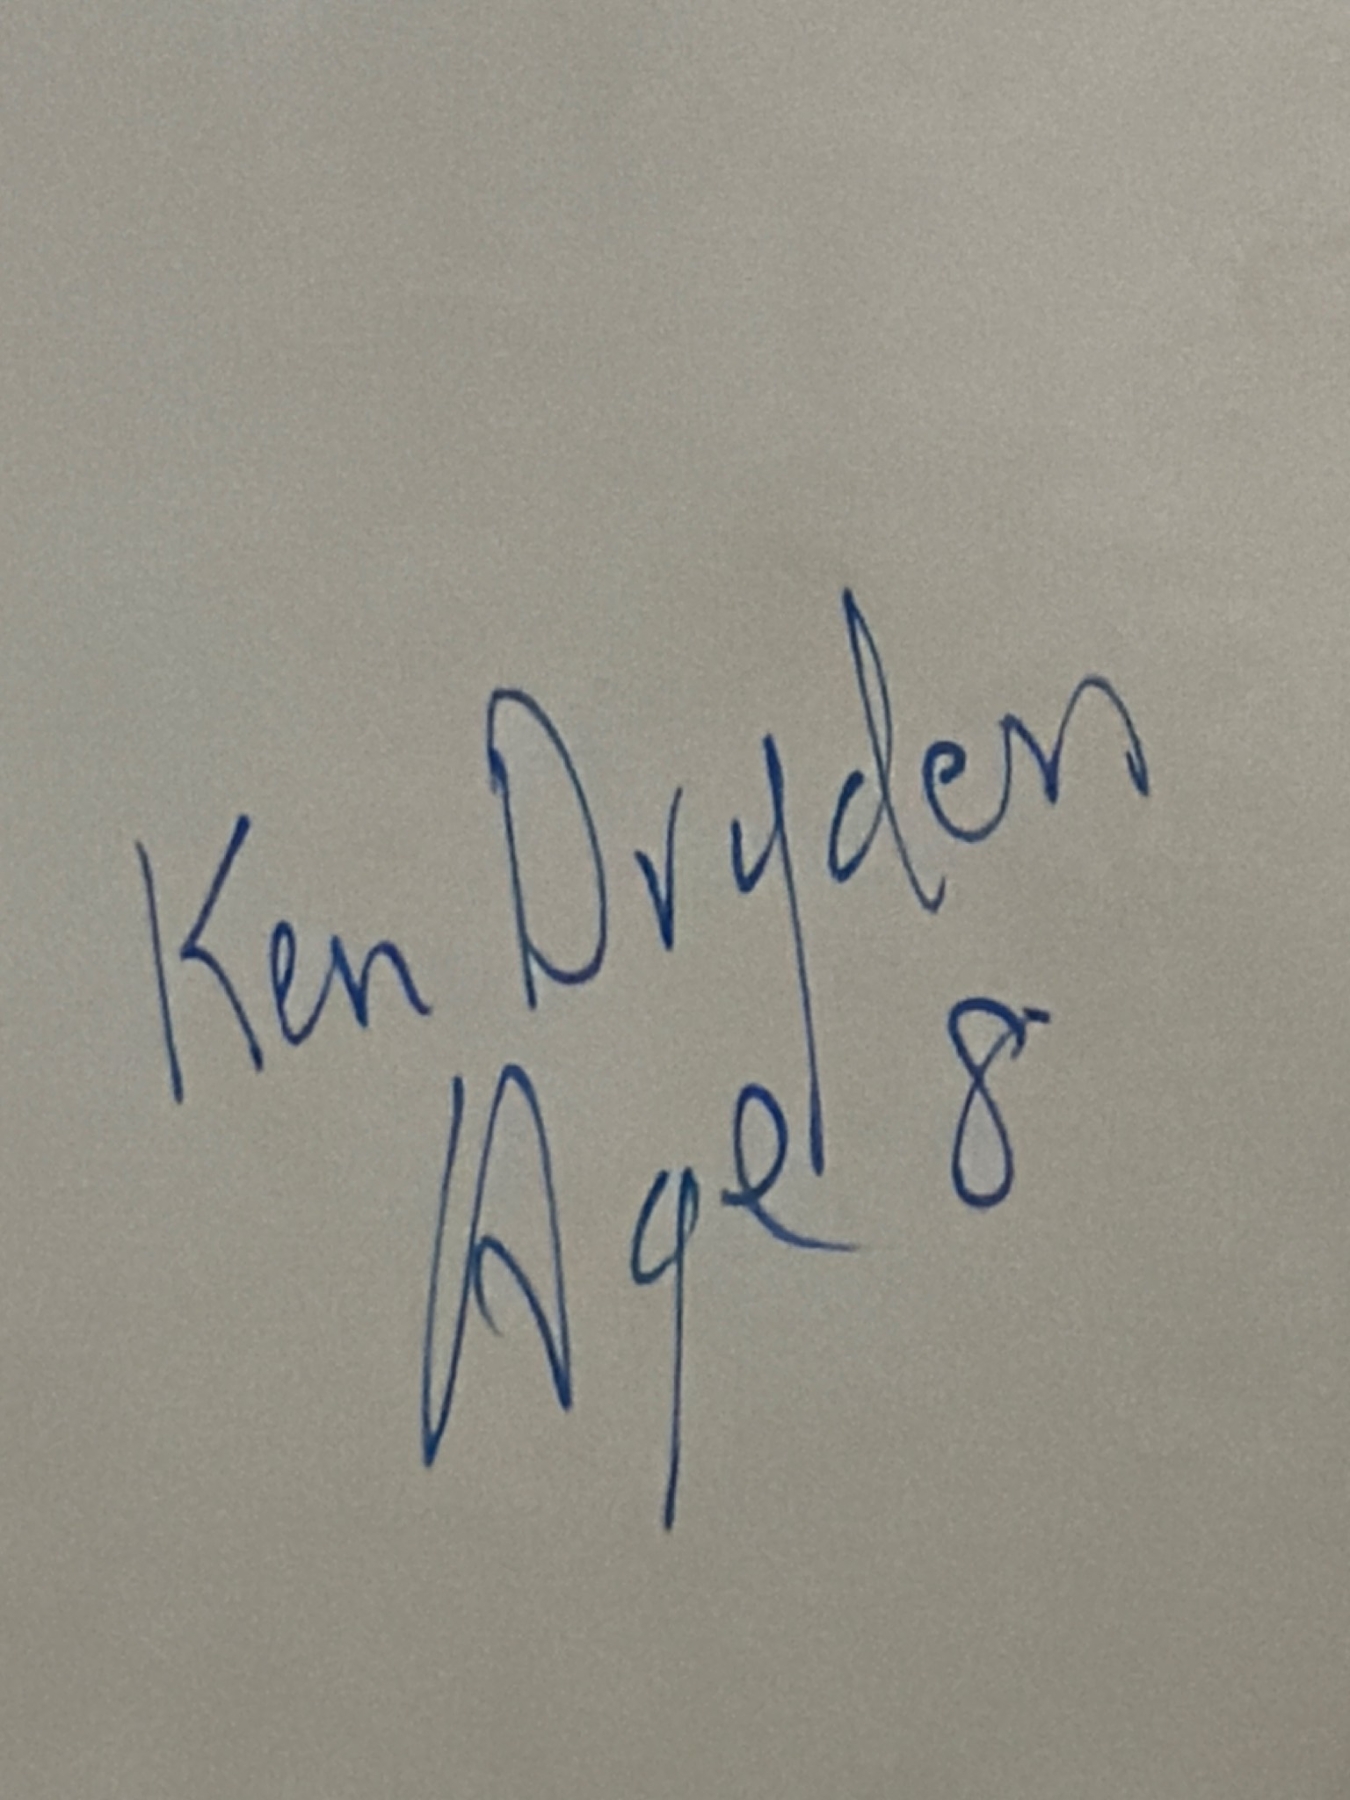 Ken Dryden
Age 8